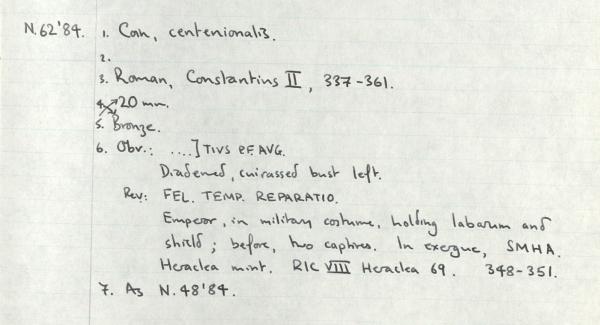 N.62'84. 1. Coin, centenionalis.
2.
3. Roman, Constantius II, 337-361.
4. 20 mm.
5. Bronze.
6. Obv.: ....] TIVS P.F. AVG.
Diademed, cuirassed bust left.
Rev: FEL. TEMP. REPARATIO.
Emperor, in military costume, holding labarum and
shield; before, two captives. In exergue, SMHA.
Heraclea mint. RIC VIII Heraclea 69. 348-351.
7. As N.48'84.